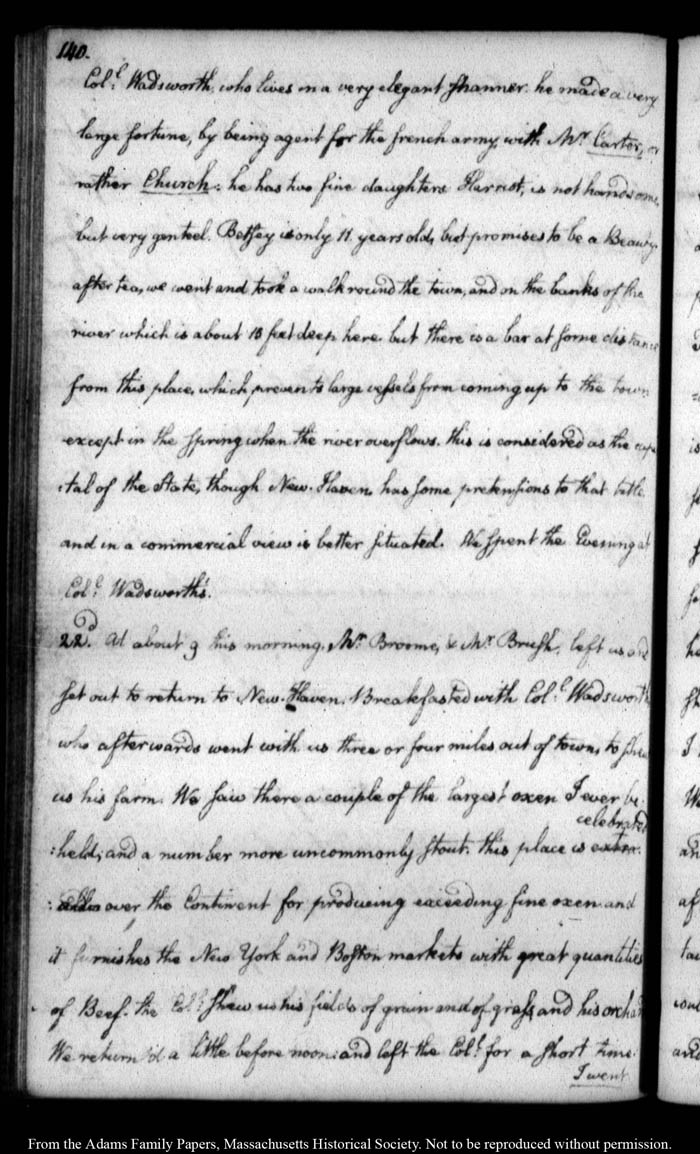 140.
Col.l Wadsworth, who lives in a very elegant manner. he made a very
large fortune, by being agent for the french army, with Mr Carter, or
rather Church. he has two fine daughters Harriot, is not handsome,
but very genteel. Betsey is only 11 years old, but promises to be a Beauty.
after tea, we went and took a walk round the town, and on the banks of the
river which is about 10 feet deep here but there is a bar at some distance
from this place, which, prevents large vessels from coming up to the town
except in the spring when the river overflows. this is considered as the capi
:tal of the State, though New-Haven, has some pretensions to that title
and in a commercial view is better situated. We spent the Evening at
Col.l Wadsworth's.
22.d At about 9 this morning. Mr Broome, & Mr Brush, left us and
set out to return to New-Haven. Breakfasted with Col.l Wadsworth
who afterwards went with us three or four miles out of town, to shew
us his farm. We saw there a couple of the largest oxen I ever be-
celebrated
:held; and a number more uncommonly stout. this place is extra-
: over the Continent for producing exceeding fine oxen and
it furnishes the New York and Boston markets with great quantities
of Beef. the Col.l shew us his fields of grain and of grass, and his orchard
We return'd a little before noon: and left the Col.l for a short time.
I went
From the Adams Family Papers, Massachusetts Historical Society. Not to be reproduced without permission.